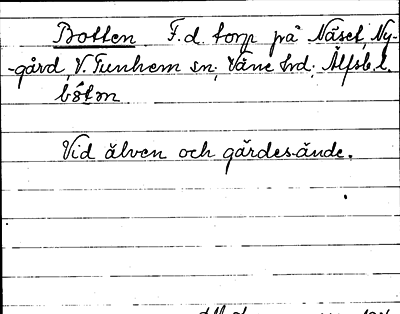 Botten F.d. torp på Näset, Ny-
-gård, V. Tunhem sn; Väne hd; Älfsb. l.
bòtən
Vid älven och gärdesände.